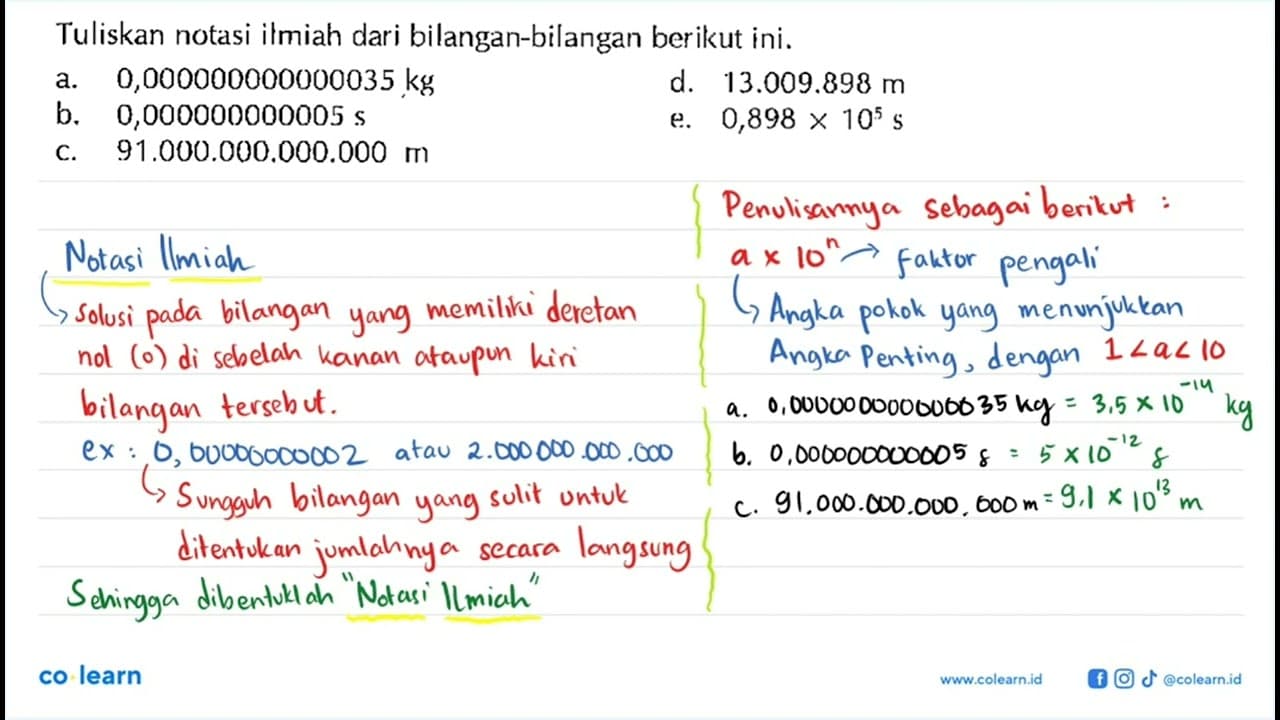 Tuliskan notasi ilmiah dari bilangan-bilangan berikut ini.
a. 0,000000000000035 kg
b. 0,000000000005 s
c. 91.000.000.000.000 m
d. 13.009.898 m
e. 0,898 × 10⁵ s
Notasi Ilmiah
↳ Solusi pada bilangan yang memiliki deretan
nol (0) di sebelah kanan ataupun kiri
bilangan tersebut.
ex : 0,0000000002 atau 2.000 000 .000 .000
↳ Sungguh bilangan yang sulit untuk
ditentukan jumlahnya secara langsung
Sehingga dibentuklah "Notasi Ilmiah"
Penulisannya sebagai berikut :
a × 10ⁿ → Faktor pengali
↳ Angka pokok yang menunjukkan
Angka Penting, dengan 1 < a < 10
a. 0,000000000000035 kg = 3,5 × 10⁻¹⁴ kg
b. 0,000000000005 s = 5 × 10⁻¹² s
c. 91.000.000.000.000 m = 9,1 × 10¹³ m
co learn
www.colearn.id
@colearn.id